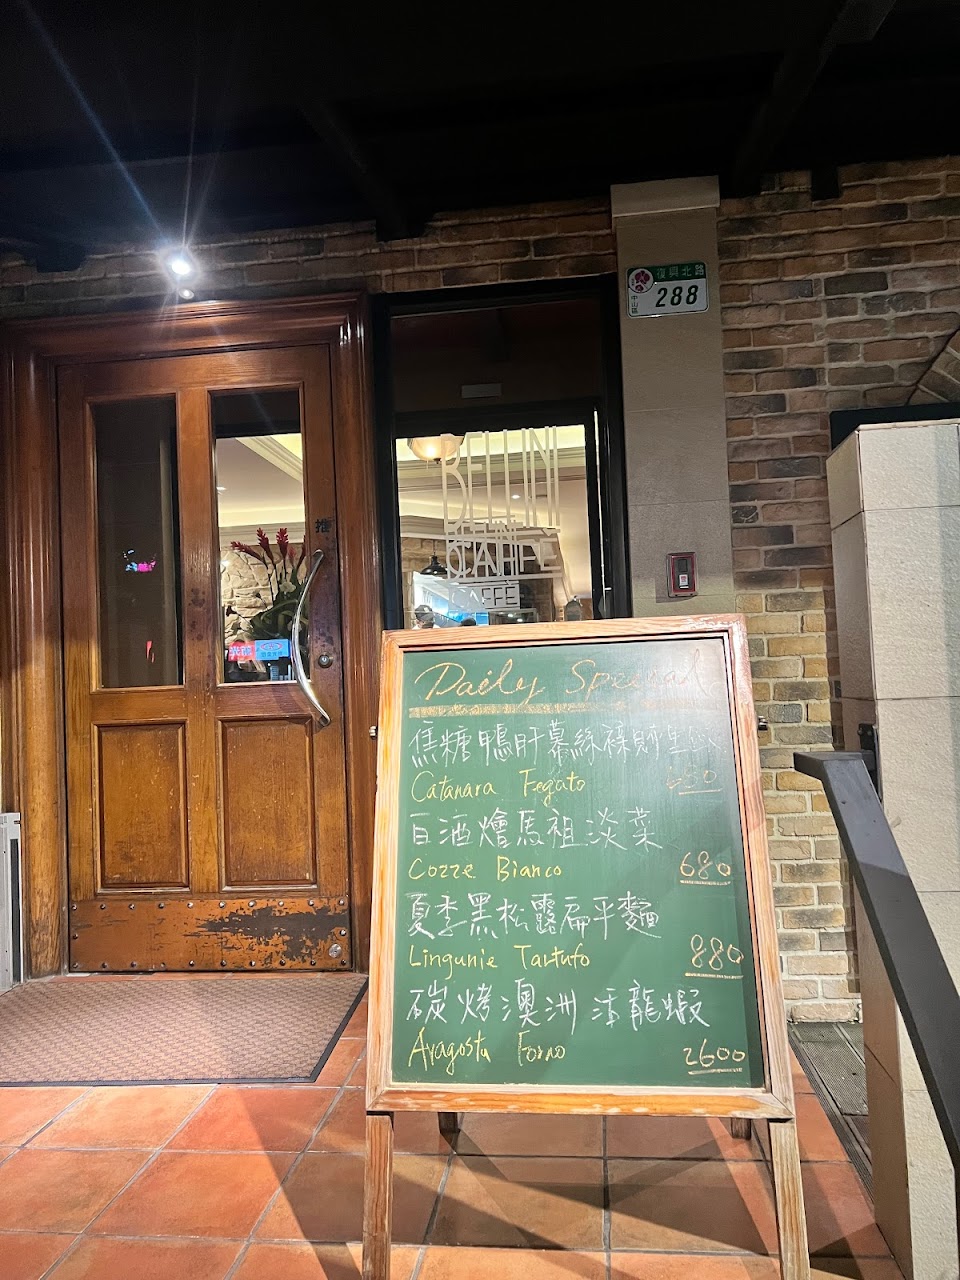 復興北路
中山區
288
BELLINI
CAFFÈ
CAFFÈ
推
Daily Special
焦糖鴨肝慕絲裸
Catanara Fegato
白酒燴馬祖淡菜
Cozze Bianco
680
夏季黑松露扁平麵
Lingunie Tartufo
880
碳烤澳洲活龍蝦
Aragosta Forno
2600